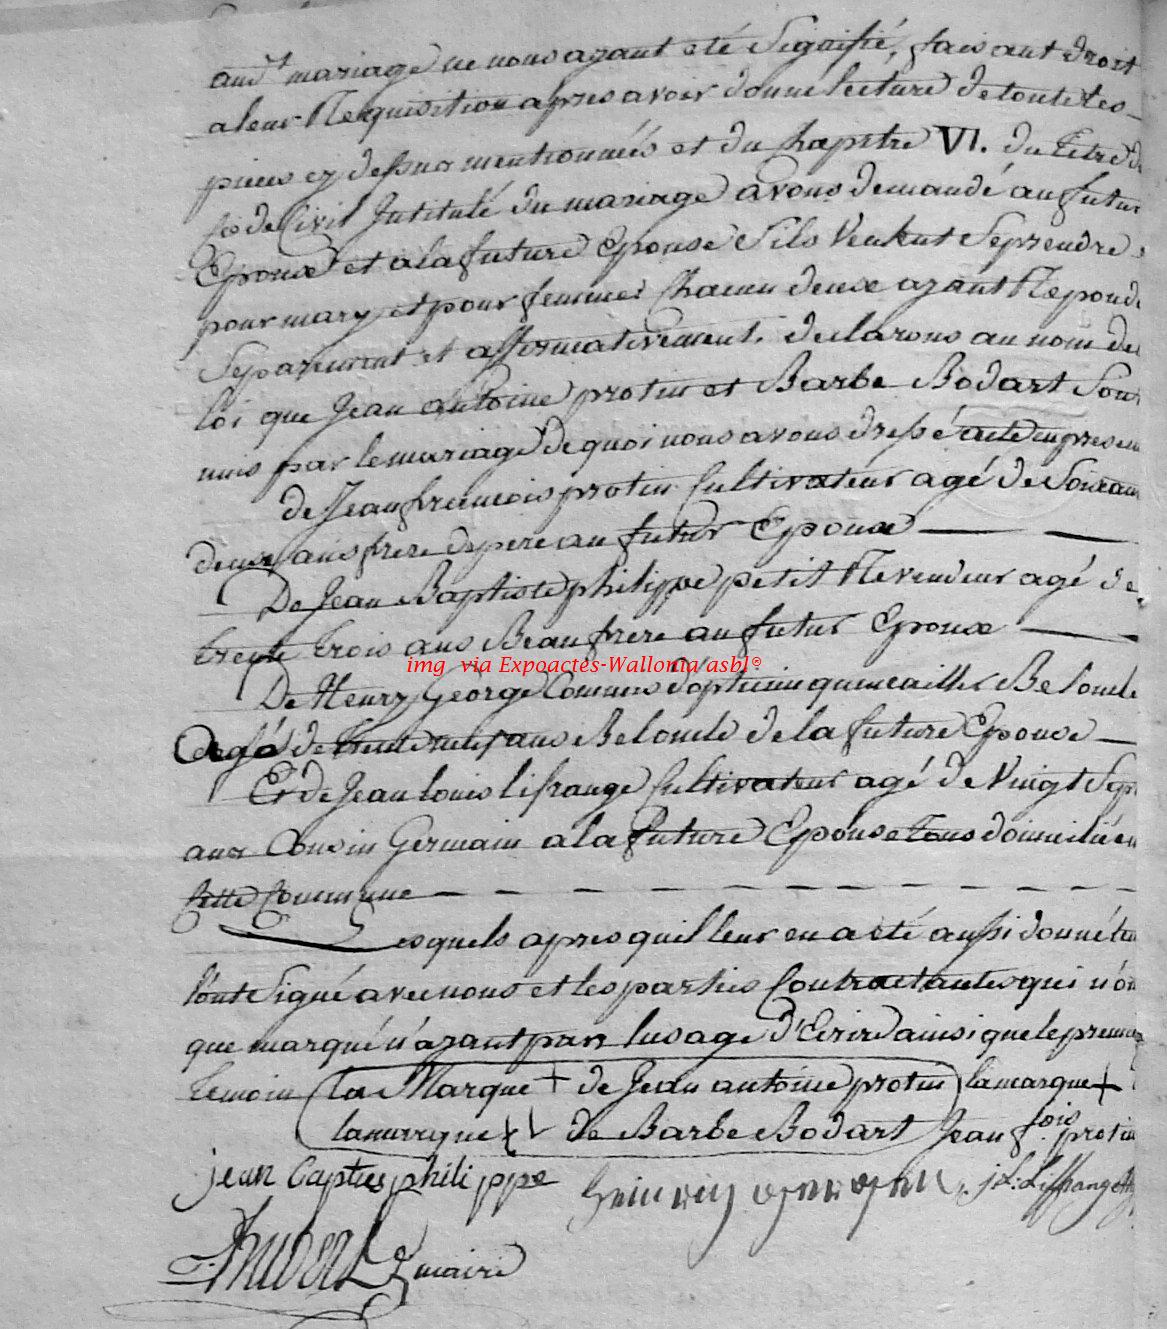 aud.t mariage ne nous ayant eté Signifié, faisant droit
a leur Requisition apres avoir donne lecture de toutes les
pieces cy dessus mentionnés et du chapitre VI. du titre d
Code Civil Intitulé du mariage avons demandé au futur
Epoux et a la future Epouse Sils Veulent Seprendre
pour mary et pour femme, Chacun deux ayant Repond
Separement et affirmativement. declarons au nom de
loi que Jean antoine protin et Barbe Bodart Sont
unis par le mariage de quoi nous avons dressé acte en presen
de Jean francois protin Cultivateur agé de Soixant
deux ans frere de pere au futur Epoux
De Jean Baptiste philippe petit Revendeur agé de
trente trois ans Beaufrere au futur Epoux
img via Expoactes-Wallonia asbl®
De Henry George Commis quincaillier Bel oncle
agé de trente neuf ans Bel oncle de la future Epouse
Et de Jean louis lifrange Cultivateur agé de Vingt Sept
ans Cousin Germain a la future Epouse tous domicilié en
Cette Commune
Lesquels apres quil leur en a eté aussi donné lec
l'ont Signé avec nous et les parties Contractantes qui n'on
que marqué n'ayant pas lusage d'Ecrire ainsi que le premie
temoin la Marque + de Jean antoine protin la marque +
la marque + de Barbe Bodart Jean f.ois protin
jean bapties philippe J L: Liffrange
maire